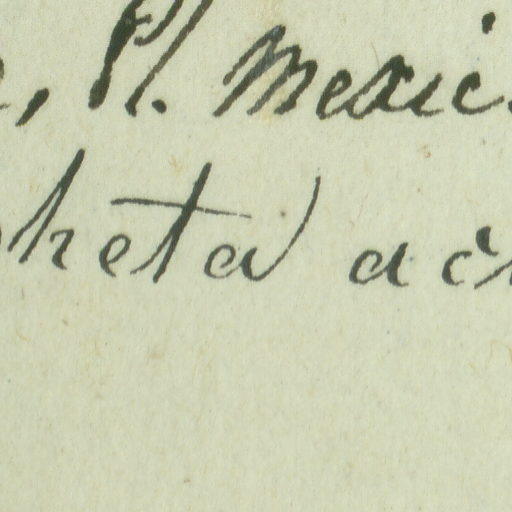 , Pl. Mexic.
heta ac